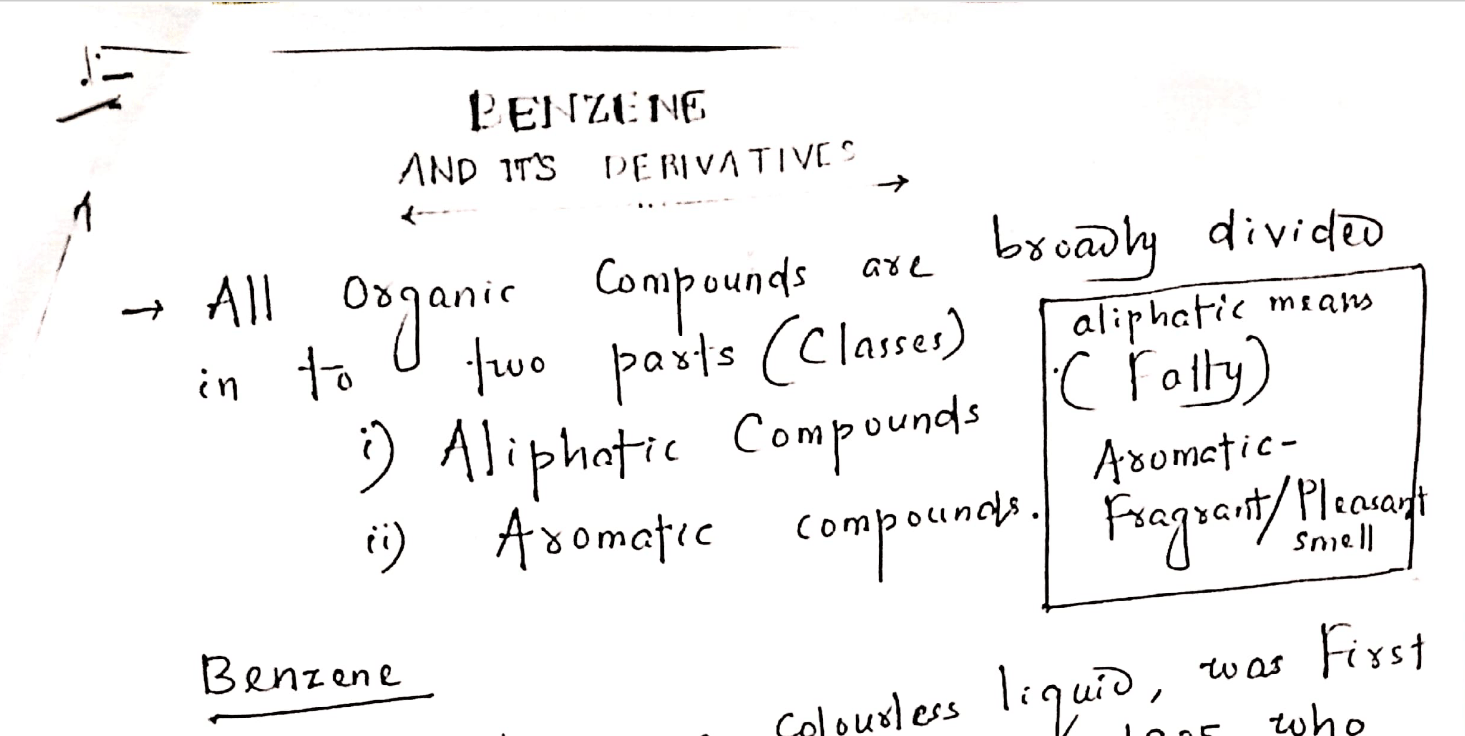 BENZENE
AND IT'S DERIVATIVES
→ All Organic Compounds are broadly divided
in to two parts (Classes)
i) Aliphatic Compounds
ii) Aromatic compounds.
aliphatic means
(Fatty)
Aromatic-
Fragrant/Pleasant
smell
Benzene
Colourless liquid, was First
who